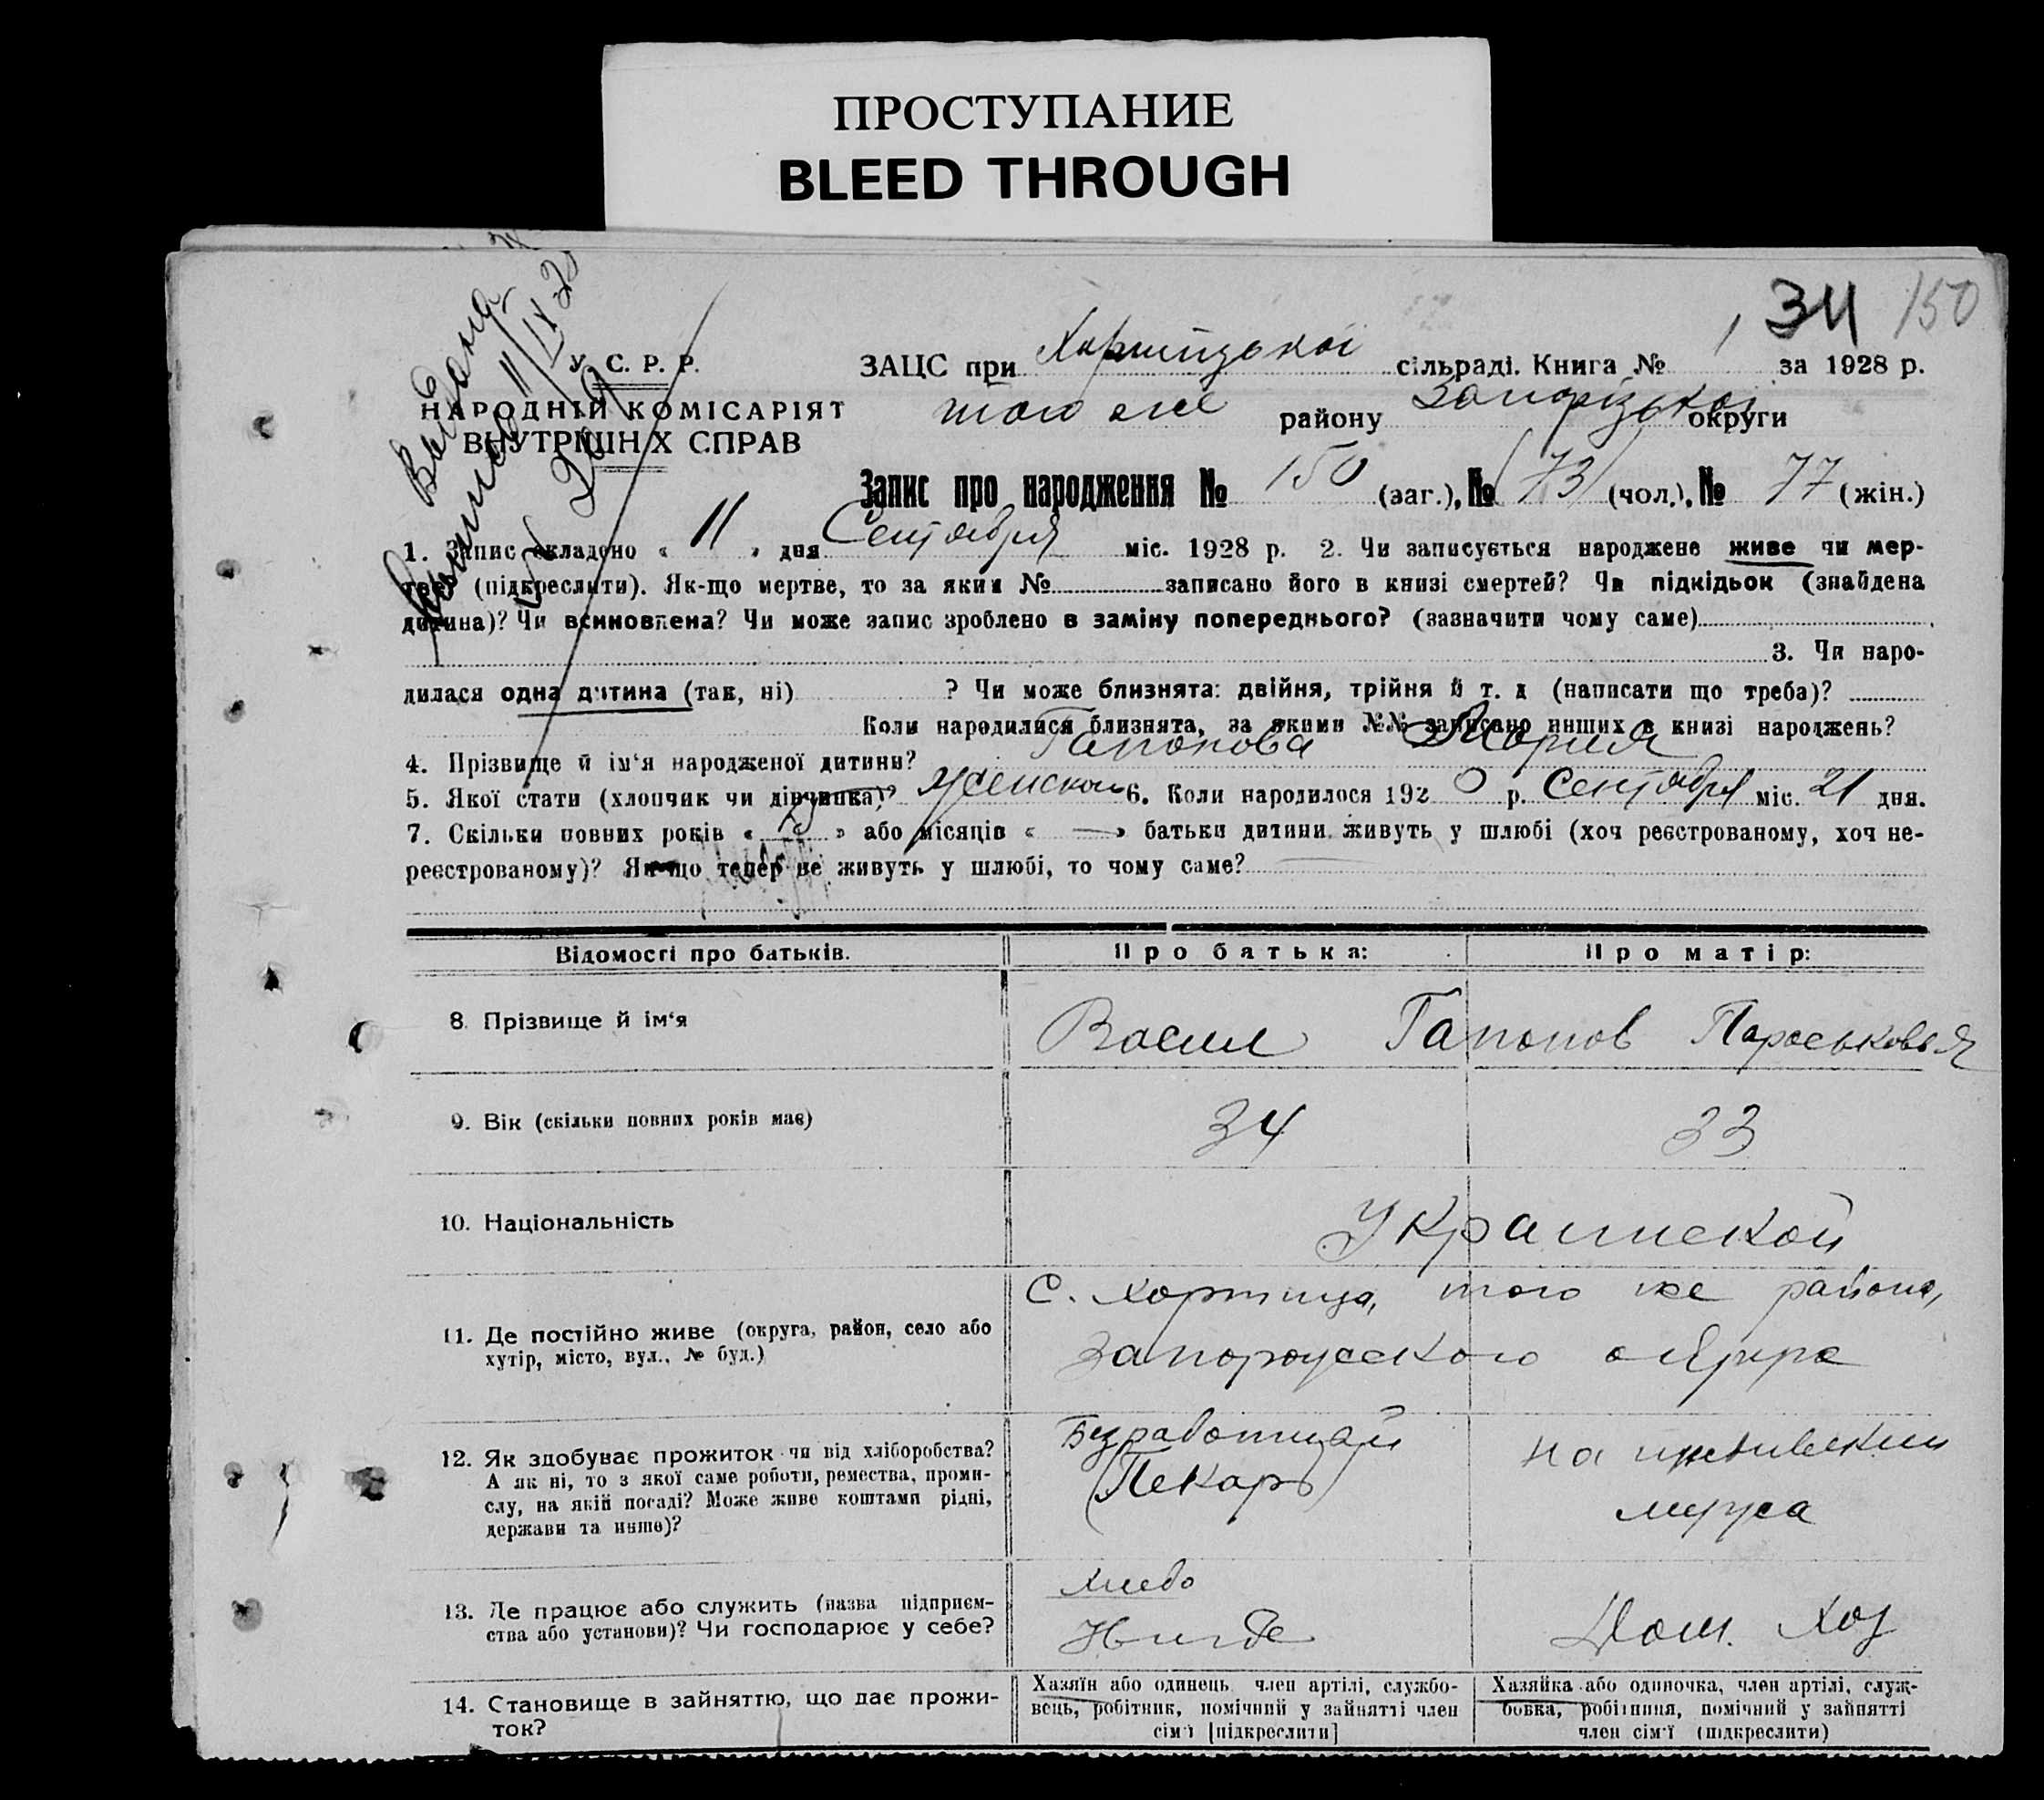 ПРОСТУПАНИЕ
BLEED THROUGH
34 150
Выдана
11/IX 2
У. С. Р. Р.
НАРОДНІЙ КОМІСАРІЯТ
ВНУТРІШНІХ СПРАВ
ЗАЦС при Хортицької сільраді. Книга № 1 за 1928 р.
того же району Запорізької округи
Запис про народження № 150 (заг.), № 73 (чол.), № 77 (жін.)
1. Запис складено « 11 » дня Сентября міс. 1928 р. 2. Чи записується народжене живе чи мер-
тве? (підкреслити). Як-що мертве, то за яким № записано його в книзі смертей? Чи підкідьок (знайдена
дитина)? Чи всиновлена? Чи може запис зроблено в заміну попереднього? (зазначити чому саме)
3. Чи наро-
дилася одна дитина (так, ні) ? Чи може близнята: двійня, трійня й т. д (написати що треба)?
Коли народилися близнята, за якими №№ записано инших в книзі народжень?
4. Прізвище й ім'я народженої дитини? Гапонова Мария
5. Якої стати (хлопчик чи дівчинка)? Женской 6. Коли народилося 192 0 р. Сентября міс. 21 дня.
7. Скільки повних років « » або місяців « — » батьки дитини живуть у шлюбі (хоч реєстрованому, хоч не-
реєстрованому)? Як-що тепер не живуть у шлюбі, то чому саме?
Відомості про батьків. Про батька: Про матір:
8. Прізвище й ім'я Васил Гапонов Параськовья
9. Вік (скільки повних років має) 34 33
10. Національність Украинской
11. Де постійно живе (округа, район, село або
хутір, місто, вул., № буд.)
С. Хортица, того же района,
Запорожского округа
12. Як здобуває прожиток чи від хліборобства?
А як ні, то з якої саме роботи, ремества, проми-
слу, на якій посаді? Може живе коштами рідні,
держави та инше)?
Безработный
(Пекарь)
на иждивении
мужа
13. Де працює або служить (назва підприєм-
ства або установи)? Чи господарює у себе?
Нигде
Дом. Хоз
14. Становище в зайняттю, що дає прожи-
ток?
Хазяїн або одинець член артілі, службо-
вець, робітник, помічний у зайнятті член
сім'ї [підкреслити]
Хазяйка або одиночка, член артілі, служ-
бовка, робітниця, помічний у зайнятті
член сім'ї (підкреслити)